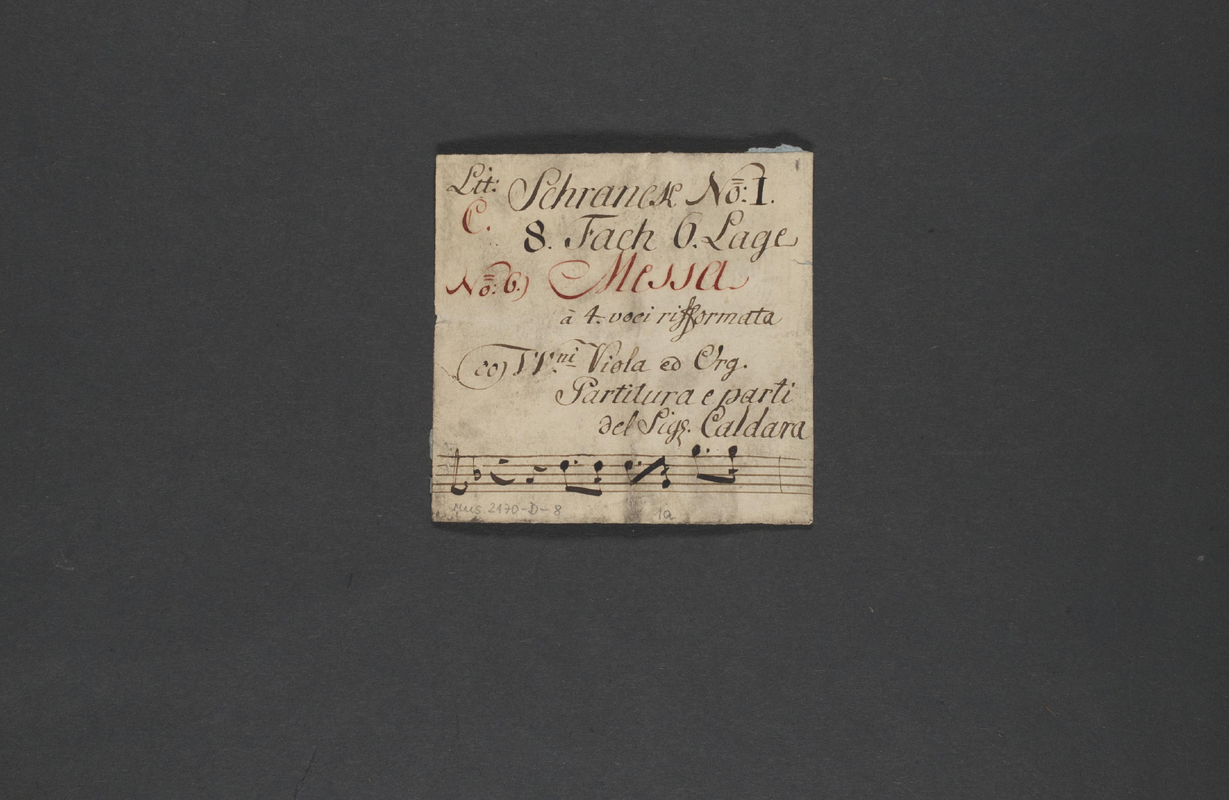 Lit: Schranck No: I.
C.
8. Fach 6. Lage
No: 6.) Messa
à 4. voci rifformata
co VV.ni Viola ed Org.
Partitura e parti
del Sigr. Caldara
Mus. 2170-D-8 1a